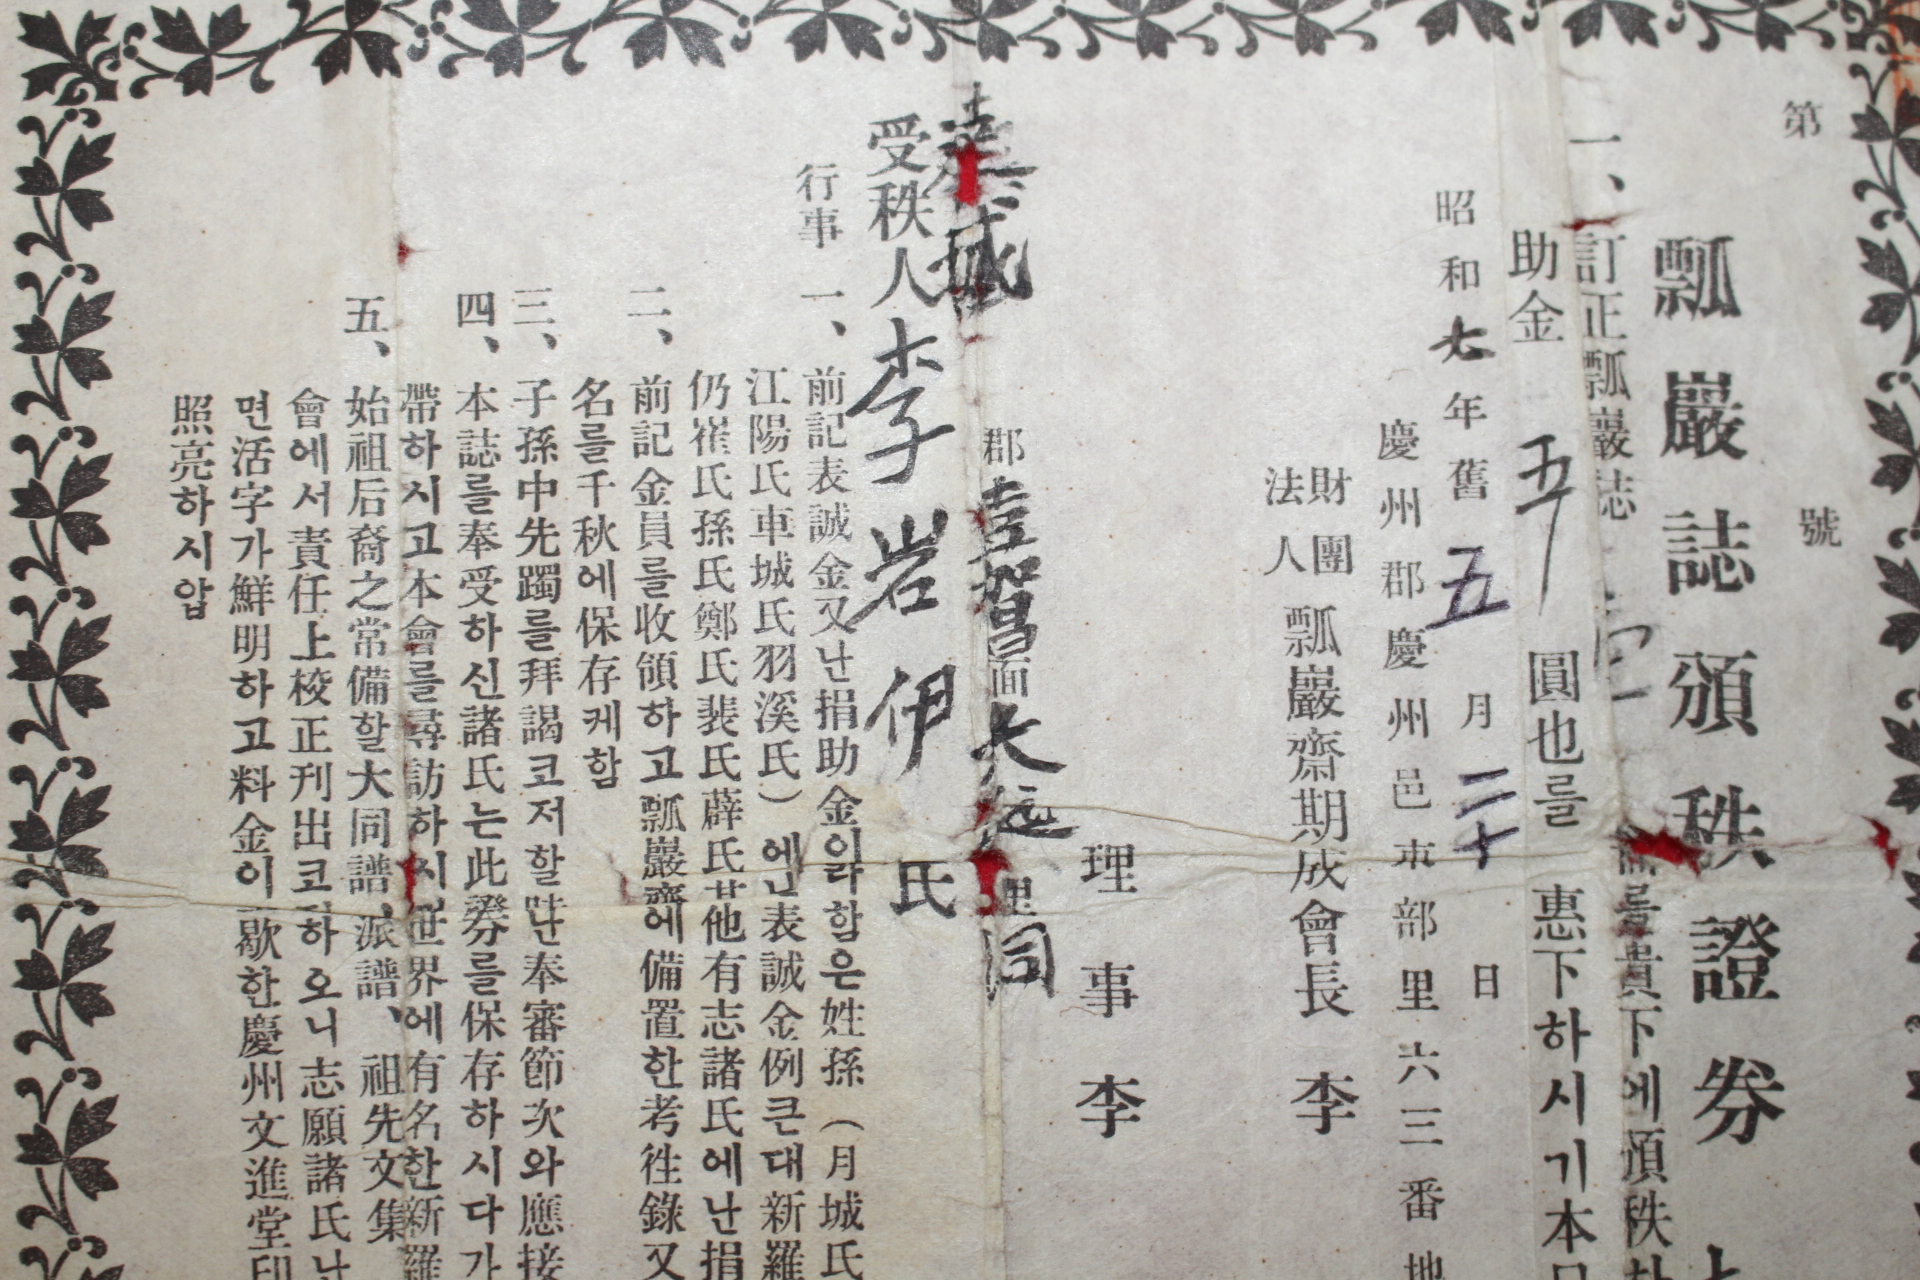 第 號
瓢巖誌頒秩證券
一、訂正瓢巖誌 를貴下에頒秩
助金 五 圓也를 惠下하시기本
昭和七年舊五月二十日
慶州郡慶州邑市部里六三番地
財團
法人
瓢巖齋期成會長 李
理事 李
達城郡嘉昌面大 里同
受秩人李岩伊 氏
行事
一、前記表誠金又난捐助金이라함은姓孫(月城氏
江陽氏車城氏羽溪氏)에난表誠金例큰대新羅
仍崔氏孫氏鄭氏裴氏薛氏其他有志諸氏에난捐
二、前記金員를收領하고瓢巖齋에備置한考徃錄又
名를千秋에保存케함
三、子孫中先躅를拜謁코저할딴奉審節次와應接
四、本誌를奉受하신諸氏는此券를保存하시다가
帶하시고本會를尋訪하시 世界에有名한新羅
五、始祖后裔之常備할大同譜、派譜、祖先文集
會에서責任上校正刊出코 하오니志願諸氏난
면活字가鮮明하고料金이 歇한慶州文進堂印
照亮하시압